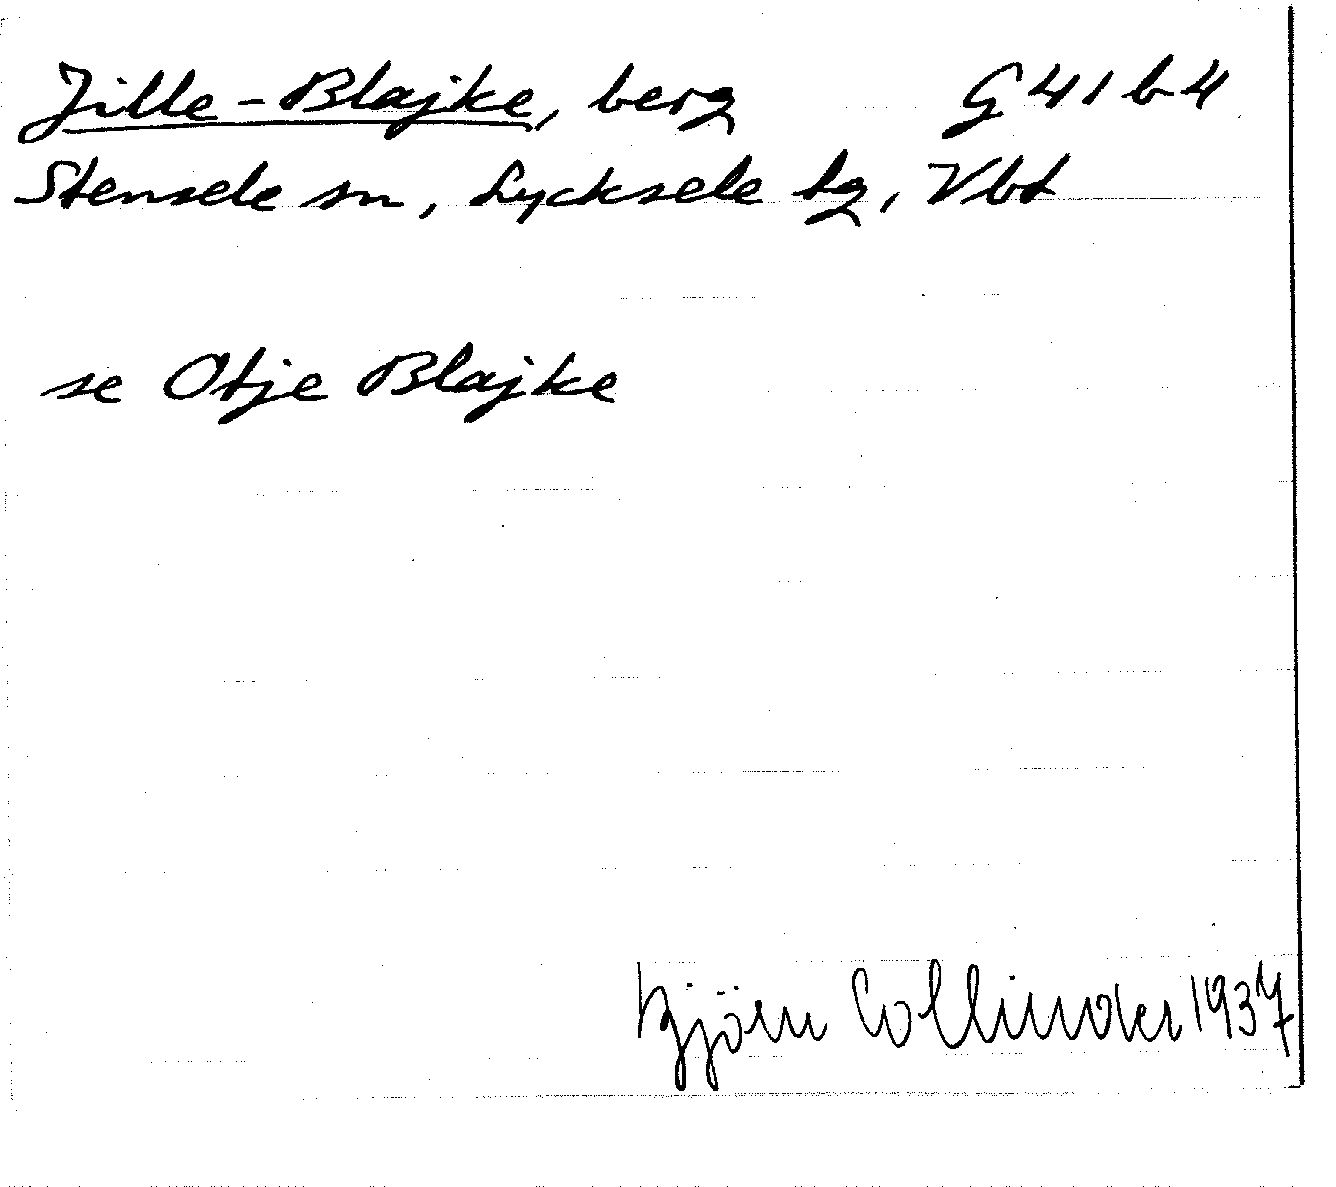 Jille-Blajke, berg G 41 b 4
Stensele sn, Lycksele tg, Vbt
se Otje Blajke
Björn Collinder 1937